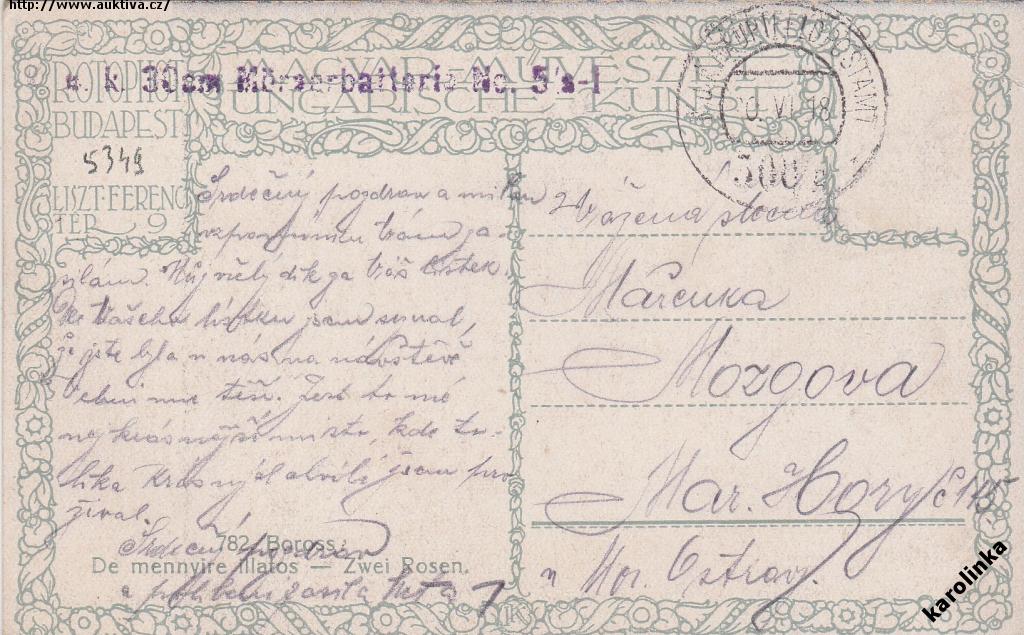 http://www.auktiva.cz/
ROTOPHOT
BUDAPEST
5349
LISZT-FERENC
TÉR 9
MAGYAR MŰVÉSZET
UNGARISCHE KUNST
k. k. 30cm Mörserbatterie No. 5/s-I
K.u.K. FELDPOSTAMT
VI. 18
Srdečný pozdrav a milou
vzpomínku Vám za-
sílám. Můj vřelý dík za Váš lístek.
Ze Vašeho lístku jsem seznal,
že jste byla u nás na návštěvě
mne těší. Jest to mé
nejkrásnější místo, kde to-
lika krásných chvil jsem pro
žíval.
Srdečný pozdrav
a políbení zasílá
782. Boross:
De mennyire illatos — Zwei Rosen.
Vážená slečna
Mařenka
Mozgova
Mar. Hory č 145
u Mor. Ostravy.
karolinka